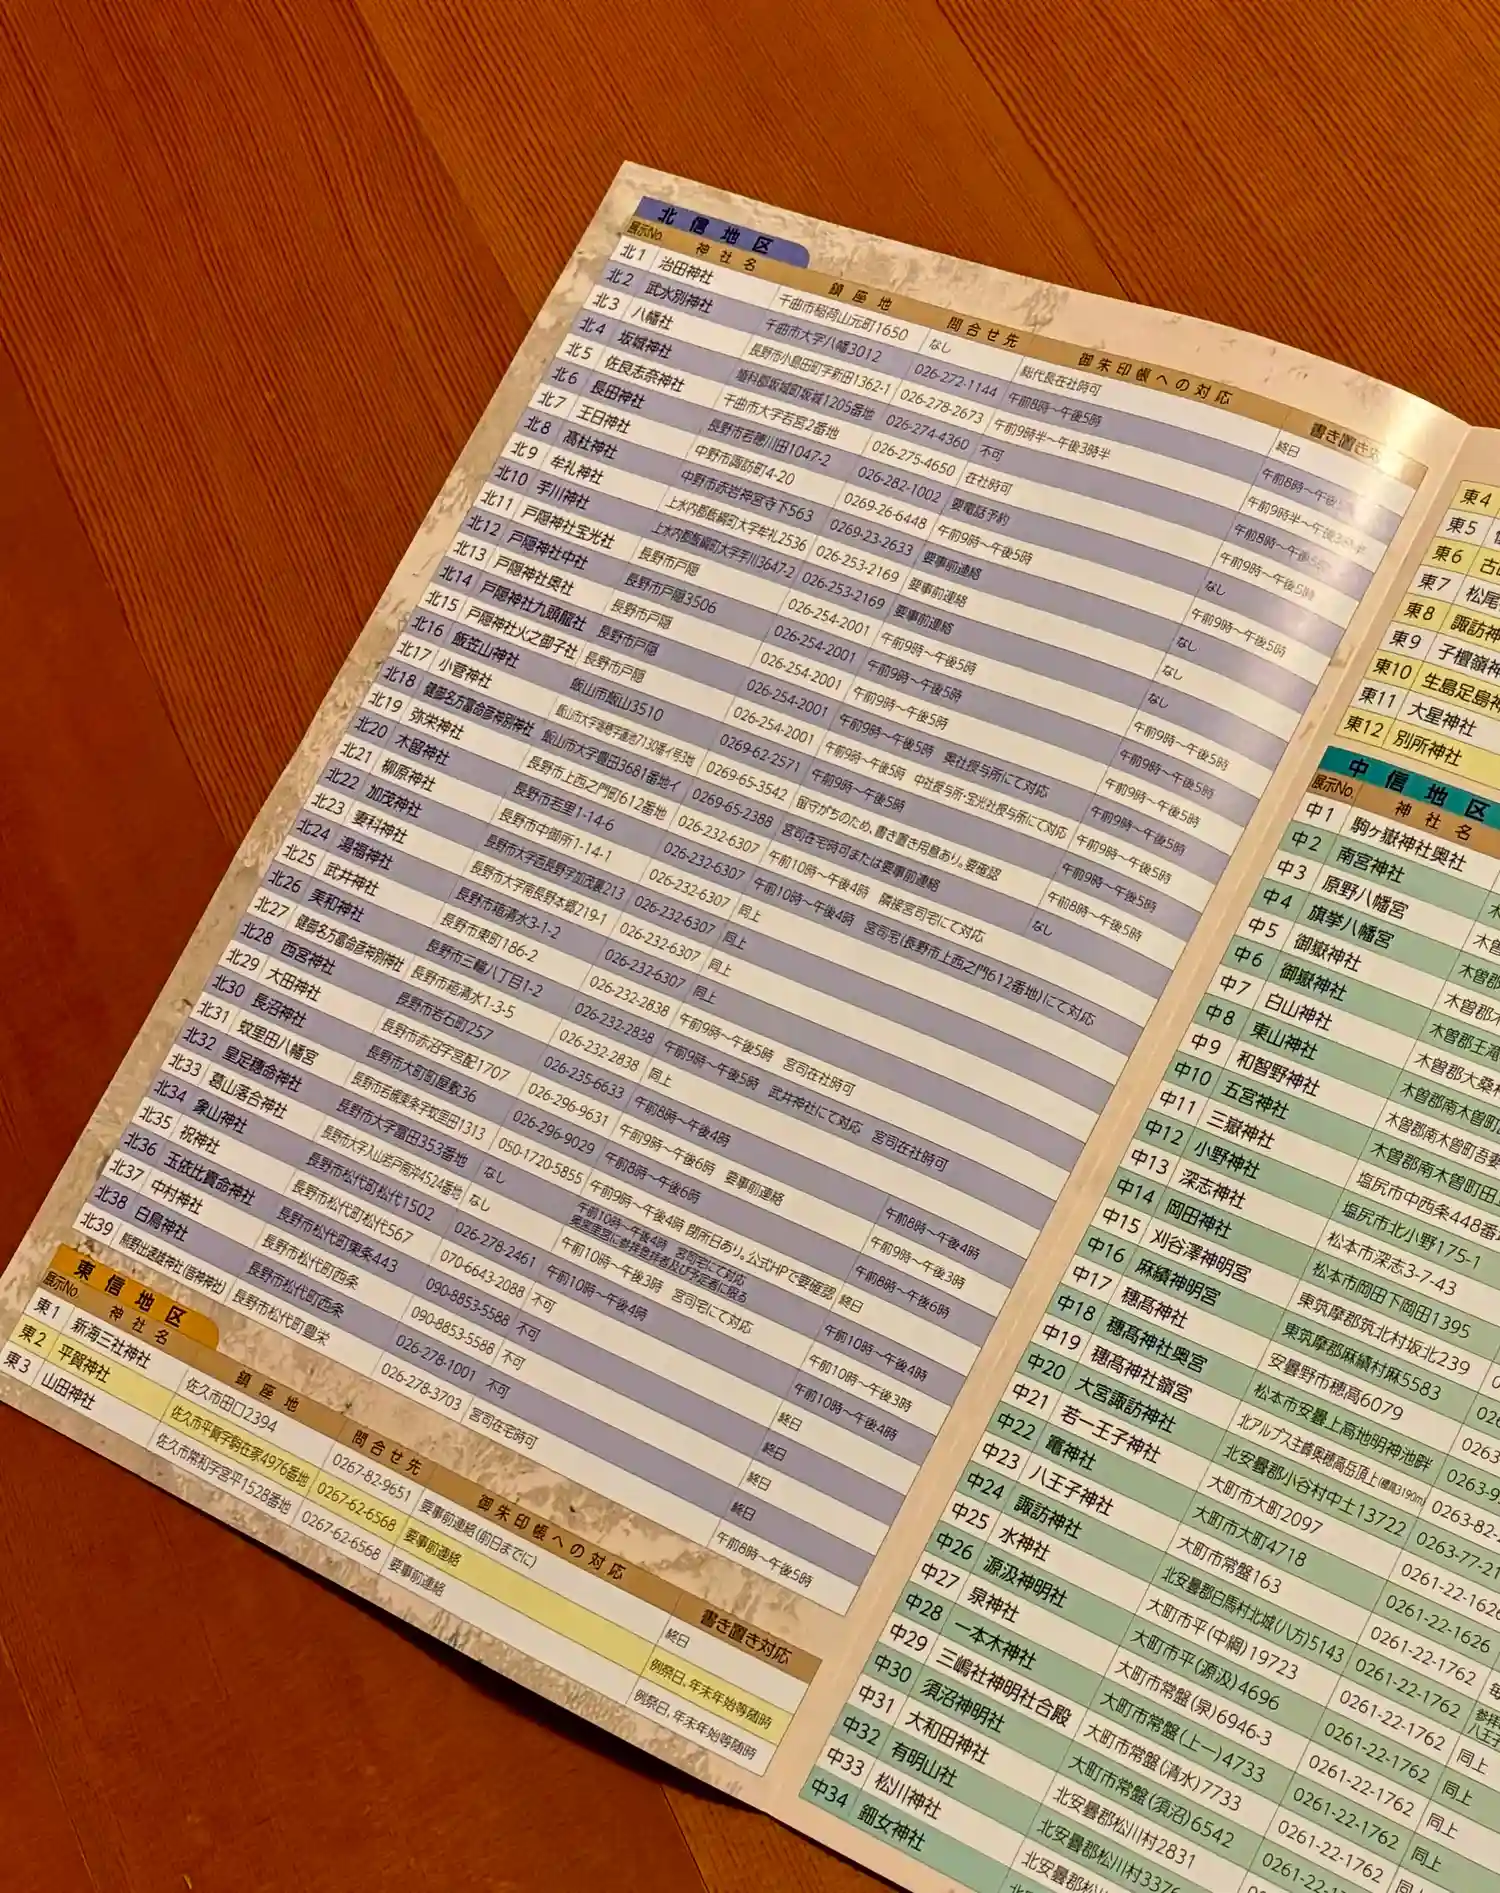 北信地区
展示No. 神社名 鎮座地 問合せ先 御朱印帳への対応 書き置き対応
北1 治田神社 千曲市稲荷山元町1650 なし 総代長在社時可 終日
北2 武水別神社 千曲市大字八幡3012 026-272-1144 午前8時～午後5時 午前8時～午後5時
北3 八幡社 長野市小島田町字新田1362-1 026-278-2673 午前9時半～午後3時半 午前9時半～午後3時半
北4 坂城神社 埴科郡坂城町坂城1205番地 026-274-4360 不可 午前8時～午後5時
北5 佐良志奈神社 千曲市大字若宮2番地 026-275-4650 在社時可 午前9時～午後5時
北6 長田神社 長野市若穂川田1047-2 026-282-1002 要電話予約 なし
北7 王日神社 中野市諏訪町4-20 0269-26-6448 午前9時～午後5時 午前9時～午後5時
北8 高杜神社 中野市赤岩神宮寺下563 0269-23-2633 要事前連絡 なし
北9 牟礼神社 上水内郡飯綱町大字牟礼2536 026-253-2169 要事前連絡 なし
北10 芋川神社 上水内郡飯綱町大字芋川3647-2 026-253-2169 要事前連絡 なし
北11 戸隠神社宝光社 長野市戸隠 026-254-2001 午前9時～午後5時 午前9時～午後5時
北12 戸隠神社中社 長野市戸隠3506 026-254-2001 午前9時～午後5時 午前9時～午後5時
北13 戸隠神社奥社 長野市戸隠 026-254-2001 午前9時～午後5時 午前9時～午後5時
北14 戸隠神社九頭龍社 長野市戸隠 026-254-2001 午前9時～午後5時 奥社授与所にて対応 午前9時～午後5時
北15 戸隠神社火之御子社 長野市戸隠 026-254-2001 午前9時～午後5時 中社授与所・宝光社授与所にて対応 午前9時～午後5時
北16 飯笠山神社 飯山市飯山3510 0269-62-2571 午前9時～午後5時 午前9時～午後5時
北17 小菅神社 飯山市大字瑞穂字蓮池7130番イ号3地 0269-65-3542 留守がちのため、書き置き用意あり。要確認 午前8時～午後5時
北18 健御名方富命彦神別神社 飯山市大字豊田3681番地イ 0269-65-2388 宮司在宅時可または要事前連絡 なし
北19 弥栄神社 長野市上西之門町612番地 026-232-6307 午前10時～午後4時 隣接宮司宅にて対応
北20 木留神社 長野市若里1-14-6 026-232-6307 午前10時～午後4時 宮司宅(長野市上西之門612番地)にて対応
北21 柳原神社 長野市中御所1-14-1 026-232-6307 同上
北22 加茂神社 長野市大字西長野字加茂裏213 026-232-6307 同上
北23 妻科神社 長野市大字南長野本郷219-1 026-232-6307 同上
北24 湯福神社 長野市箱清水3-1-2 026-232-6307 同上
北25 武井神社 長野市東町186-2 026-232-2838 午前9時～午後5時 宮司在社時可
北26 美和神社 長野市三輪八丁目1-2 026-232-2838 午前9時～午後5時 武井神社にて対応 宮司在社時可
北27 健御名方富命彦神別神社 長野市箱清水1-3-5 026-232-2838 同上
北28 西宮神社 長野市岩石町257 026-235-6633 午前8時～午後4時 午前8時～午後4時
北29 大田神社 長野市赤沼字宮配1707 026-296-9631 午前9時～午後6時 要事前連絡 午前9時～午後3時
北30 長沼神社 長野市大町町屋敷36 026-296-9029 午前8時～午後6時 午前8時～午後6時
北31 蚊里田八幡宮 長野市若槻東条字蚊里田1313 050-1720-5855 午前9時～午後4時 閉所日あり。公式HPで要確認 終日
北32 皇足穗命神社 長野市大字富田353番地 なし 午前10時～午後4時 宮司宅にて対応
奥宮里宮に参拝登拝者及び予定者に限る 午前10時～午後4時
北33 葛山落合神社 長野市大字入山岩戸南沖4524番地 なし 午前10時～午後3時 宮司宅にて対応 午前10時～午後3時
北34 象山神社 長野市松代町松代1502 026-278-2461 午前10時～午後4時 午前10時～午後4時
北35 祝神社 長野市松代町松代567 070-6643-2088 不可 終日
北36 玉依比賣命神社 長野市松代町東条443 090-8853-5588 不可 終日
北37 中村神社 長野市松代町西条 090-8853-5588 不可 終日
北38 白鳥神社 長野市松代町西条 026-278-1001 不可 終日
北39 熊野出速雄神社(皆神神社) 長野市松代町豊栄 026-278-3703 宮司在宅時可 午前8時～午後5時
東信地区
展示No. 神社名 鎮座地 問合せ先 御朱印帳への対応 書き置き対応
東1 新海三社神社 佐久市田口2394 0267-82-9651 要事前連絡(前日までに) 終日
東2 平賀神社 佐久市平賀字駒在家4976番地 0267-62-6568 要事前連絡 例祭日、年末年始等随時
東3 山田神社 佐久市常和字宮平1528番地 0267-62-6568 要事前連絡 例祭日、年末年始等随時
東4
東5
東6 古
東7 松尾
東8 諏訪神
東9 子檀嶺神
東10 生島足島神
東11 大星神社
東12 別所神社
中信地区
展示No. 神社名
中1 駒ヶ嶽神社奥社
中2 南宮神社 木
中3 原野八幡宮 木曽
中4 旗挙八幡宮 木曽郡
中5 御嶽神社 木曽郡木
中6 御嶽神社 木曽郡王滝
中7 白山神社 木曽郡大桑村
中8 東山神社 木曽郡南木曽町
中9 和智野神社 木曽郡南木曽町吾妻
中10 五宮神社 木曽郡南木曽町田
中11 三嶽神社 塩尻市中西条448番
中12 小野神社 塩尻市北小野175-1
中13 深志神社 松本市深志3-7-43
中14 岡田神社 松本市岡田下岡田1395
中15 刈谷澤神明宮 東筑摩郡筑北村坂北239
中16 麻績神明宮 東筑摩郡麻績村麻5583
中17 穗高神社 安曇野市穂高6079 0263
中18 穗高神社奥宮 松本市安曇上高地明神池畔 0263-9
中19 穗高神社嶺宮 北アルプス主峰奥穂高岳頂上(標高3190m) 0263-82-
中20 大宮諏訪神社 北安曇郡小谷村中土13722 0263-77-21
中21 若一王子神社 大町市大町2097 0261-22-162
中22 竈神社 大町市大町4718 0261-22-1626
中23 八王子神社 大町市常盤163 0261-22-1762
中24 諏訪神社 北安曇郡白馬村北城(八方)5143 0261-22-1762
中25 水神社 大町市平(中綱)19723 0261-22-1762
中26 源汲神明社 大町市平(源汲)4696 0261-22-1762 同上
中27 泉神社 大町市常盤(泉)6946-3 0261-22-1762 同上
中28 一本木神社 大町市常盤(上一)4733 0261-22-1762 同上
中29 三嶋社神明社合殿 大町市常盤(清水)7733 0261-22-1762 同上
中30 須沼神明社 大町市常盤(須沼)6542
中31 大和田神社 北安曇郡松川村2831
中32 有明山社 北安曇郡松川村3376
中33 松川神社 北安曇郡松川
中34 鈿女神社